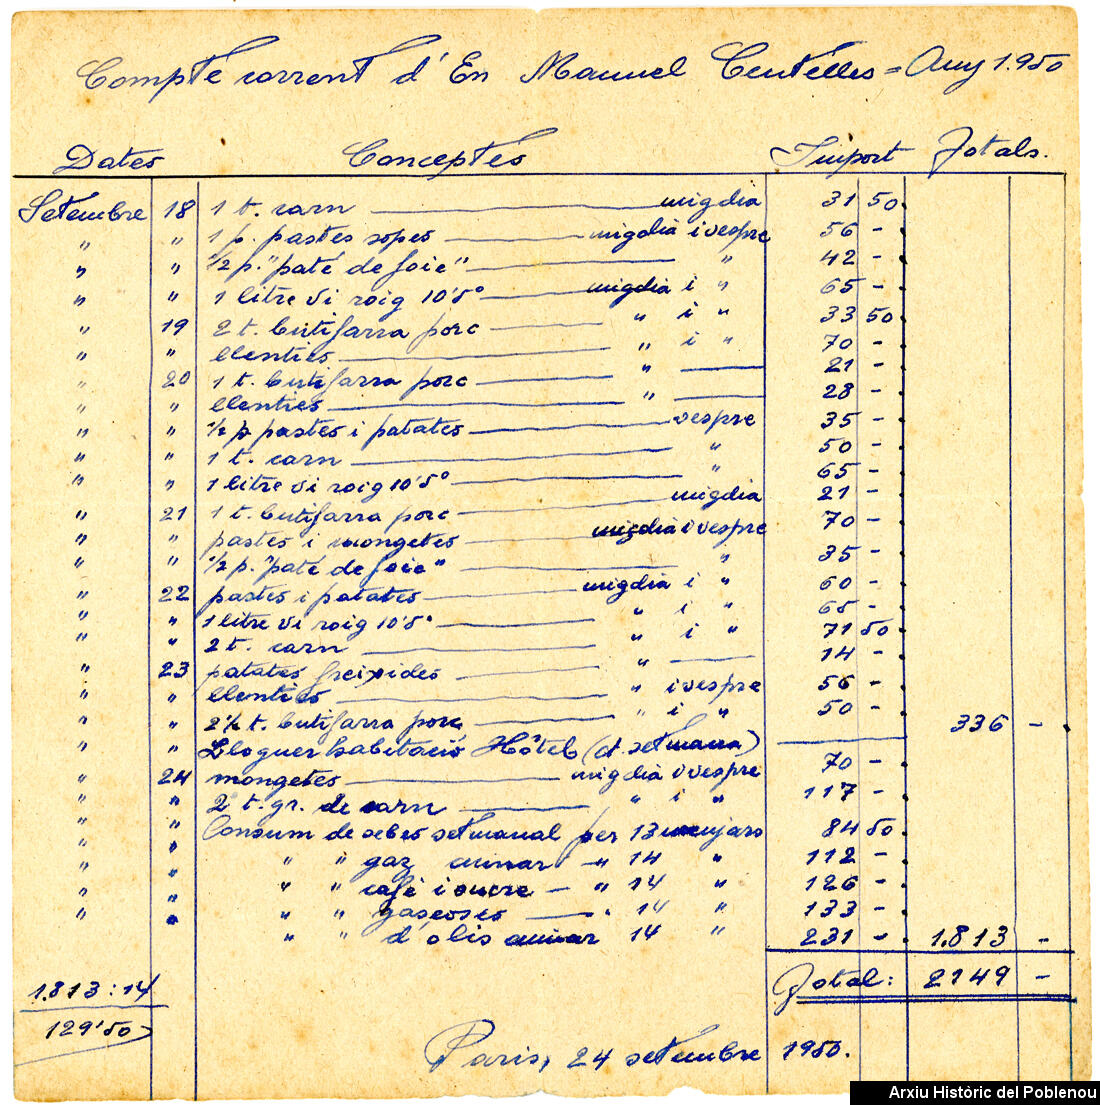 Compte corrent d'En Manuel Centelles = Any 1.950
Dates Conceptes Import Totals.
Setembre 18 1 t. carn — migdia 31 50
" " 1 p. pastes sopes — migdia i vespre 56 -
" " ½ p. "paté de foie" — " 42 -
" " 1 litre vi roig 10'5° — migdia i " 65 -
" 19 2 t. butifarra porc — " i " 33 50
" " llenties — " i " 70 -
" 20 1 t. butifarra porc — " — 21 -
" " llenties — " — 28 -
" " ½ p pastes i patates — vespre 35 -
" " 1 t. carn — " 50 -
" " 1 litre vi roig 10'5° — " 65 -
" 21 1 t. butifarra porc — migdia 21 -
" " pastes i mongetes — migdia i vespre 70 -
" " ½ p. "paté de foie" — " 35 -
" 22 pastes i patates — migdia i " 60 -
" " 1 litre vi roig 10'5° — " i " 65 -
" " 2 t. carn — " i " 71 50
" 23 patates freixides — " — 14 -
" " llenties — " i vespre 56 -
" " 2½ t. butifarra porc — " i " 50 -
" " Lloguer habitació Hôtel (1 setmana) — 336 -
" 24 mongetes — migdia i vespre 70 -
" " 2 t. gr. de carn — " i " 117 -
" " Consum de sebes setmanal per 13 menjars 84 50
" " " " gaz cuinar — " 14 " 112 -
" " " " café i sucre — " 14 " 126 -
" " " " gaseoses — " 14 " 133 -
" " d'olis cuinar 14 " 231 - 1.813 -
Total: 2149 -
1.813 : 14
129'50
Paris, 24 setembre 1950.
Arxiu Històric del Poblenou